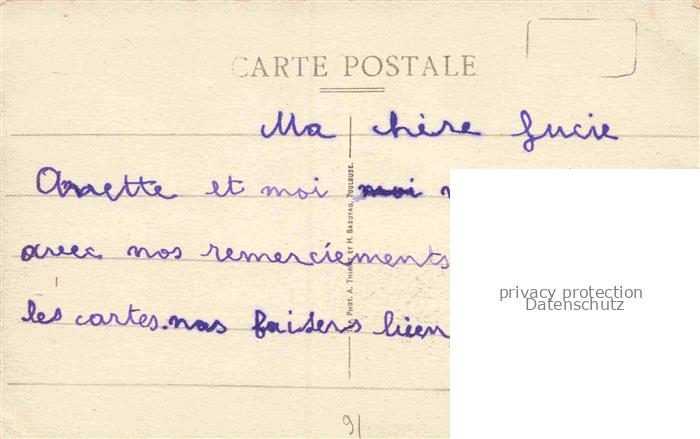 CARTE POSTALE
Ma chère Lucie
Annette et moi moi
avec nos remerciements
les cartes. nos baisers bien
PHOT. A. THIRIAT ET H. BASUYAU, TOULOUSE.
91
privacy protection
Datenschutz